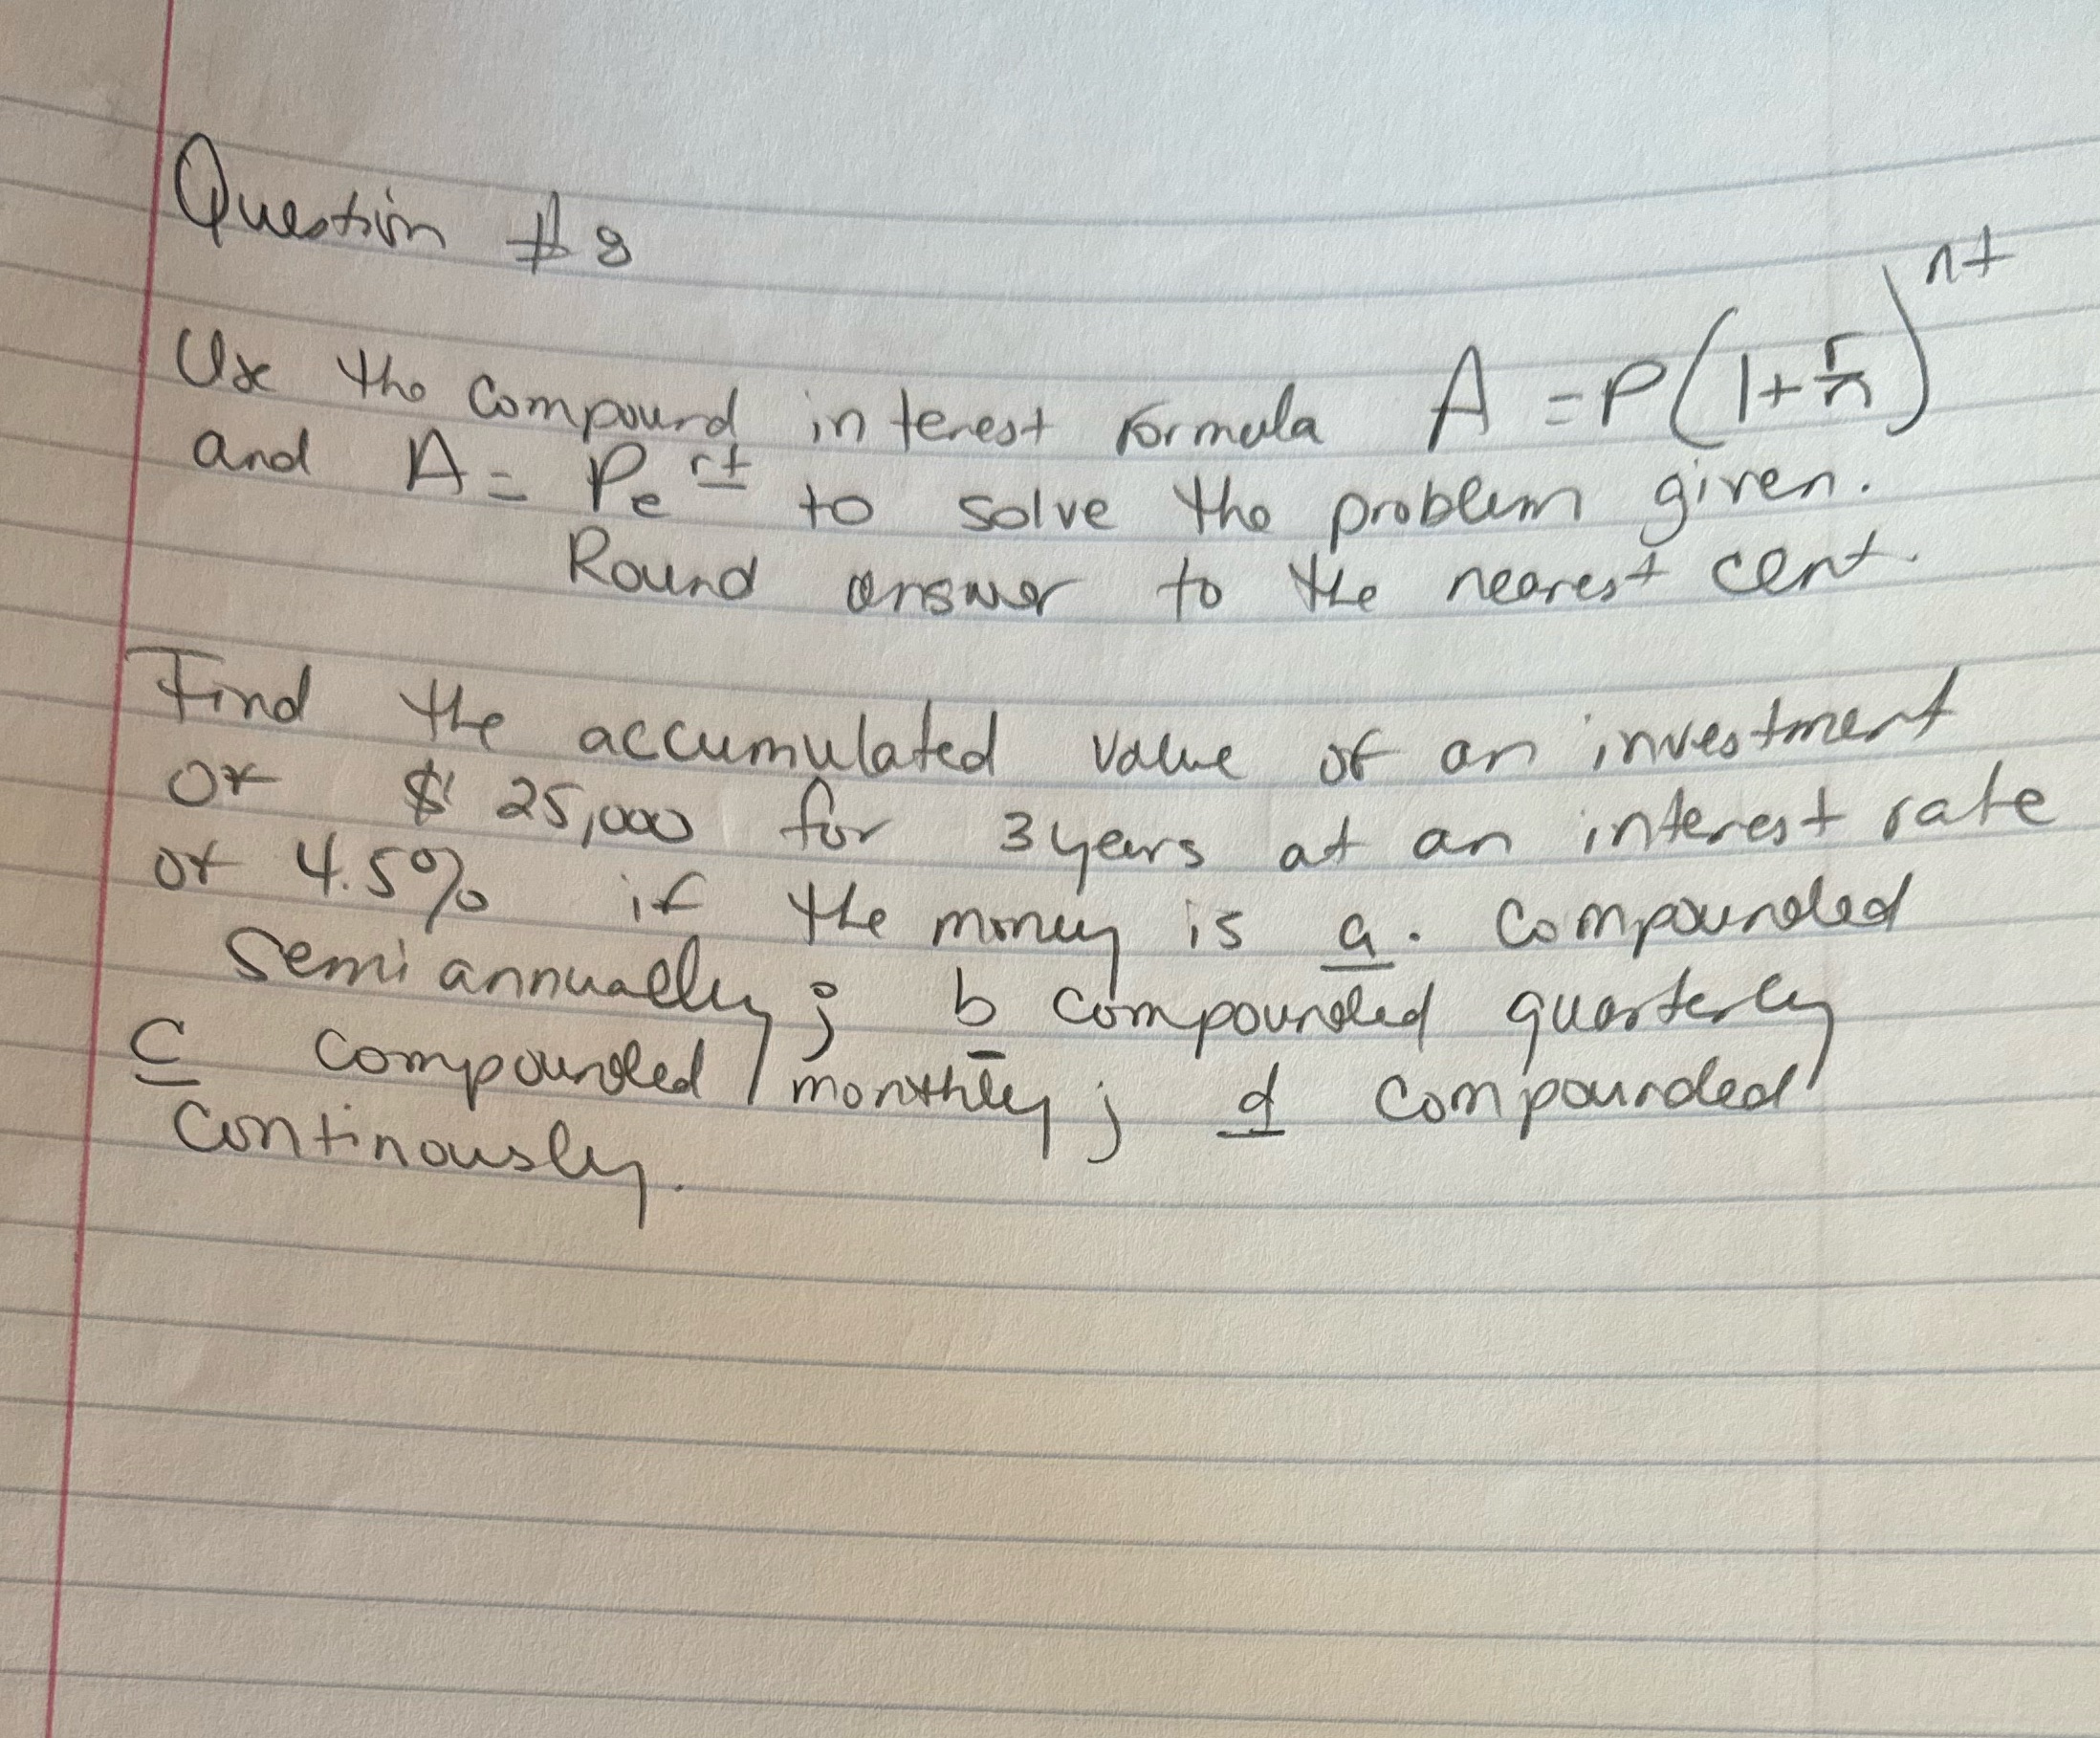 Question #8
Use the compound interest formula A = P(1+r/n)^nt
and A = Pe^rt to solve the problem given.
Round answer to the nearest cent.
Find the accumulated value of an investment
of $ 25,000 for 3 years at an interest rate
of 4.5% if the money is a. compounded
semi annually; b compounded quarterly
c compounded monthly; d compounded
continously.